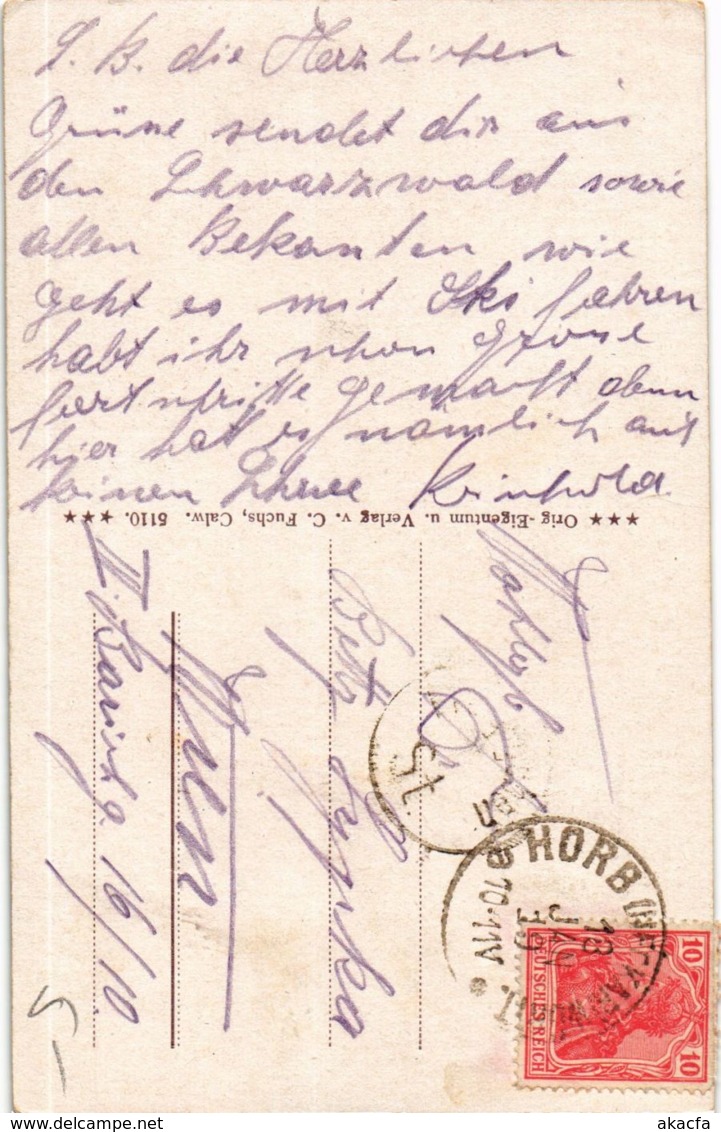 L. B. die Herzlichen
Grüse sendet dir aus
den Schwarzwald sowie
allen Bekanten wie
geht es mit Ski fahren
habt ihr schon Grose
fortschritte gemacht denn
hier hat es nämlich auch
keinen Schnee Reinhold
★★★ Orig-Eigentum u. Verlag v. C. Fuchs, Calw. 5110. ★★★
Wien
16/10.
HORB
13
JAN
10-11V
10 DEUTSCHES REICH 10
5-
akacfa
akacfa